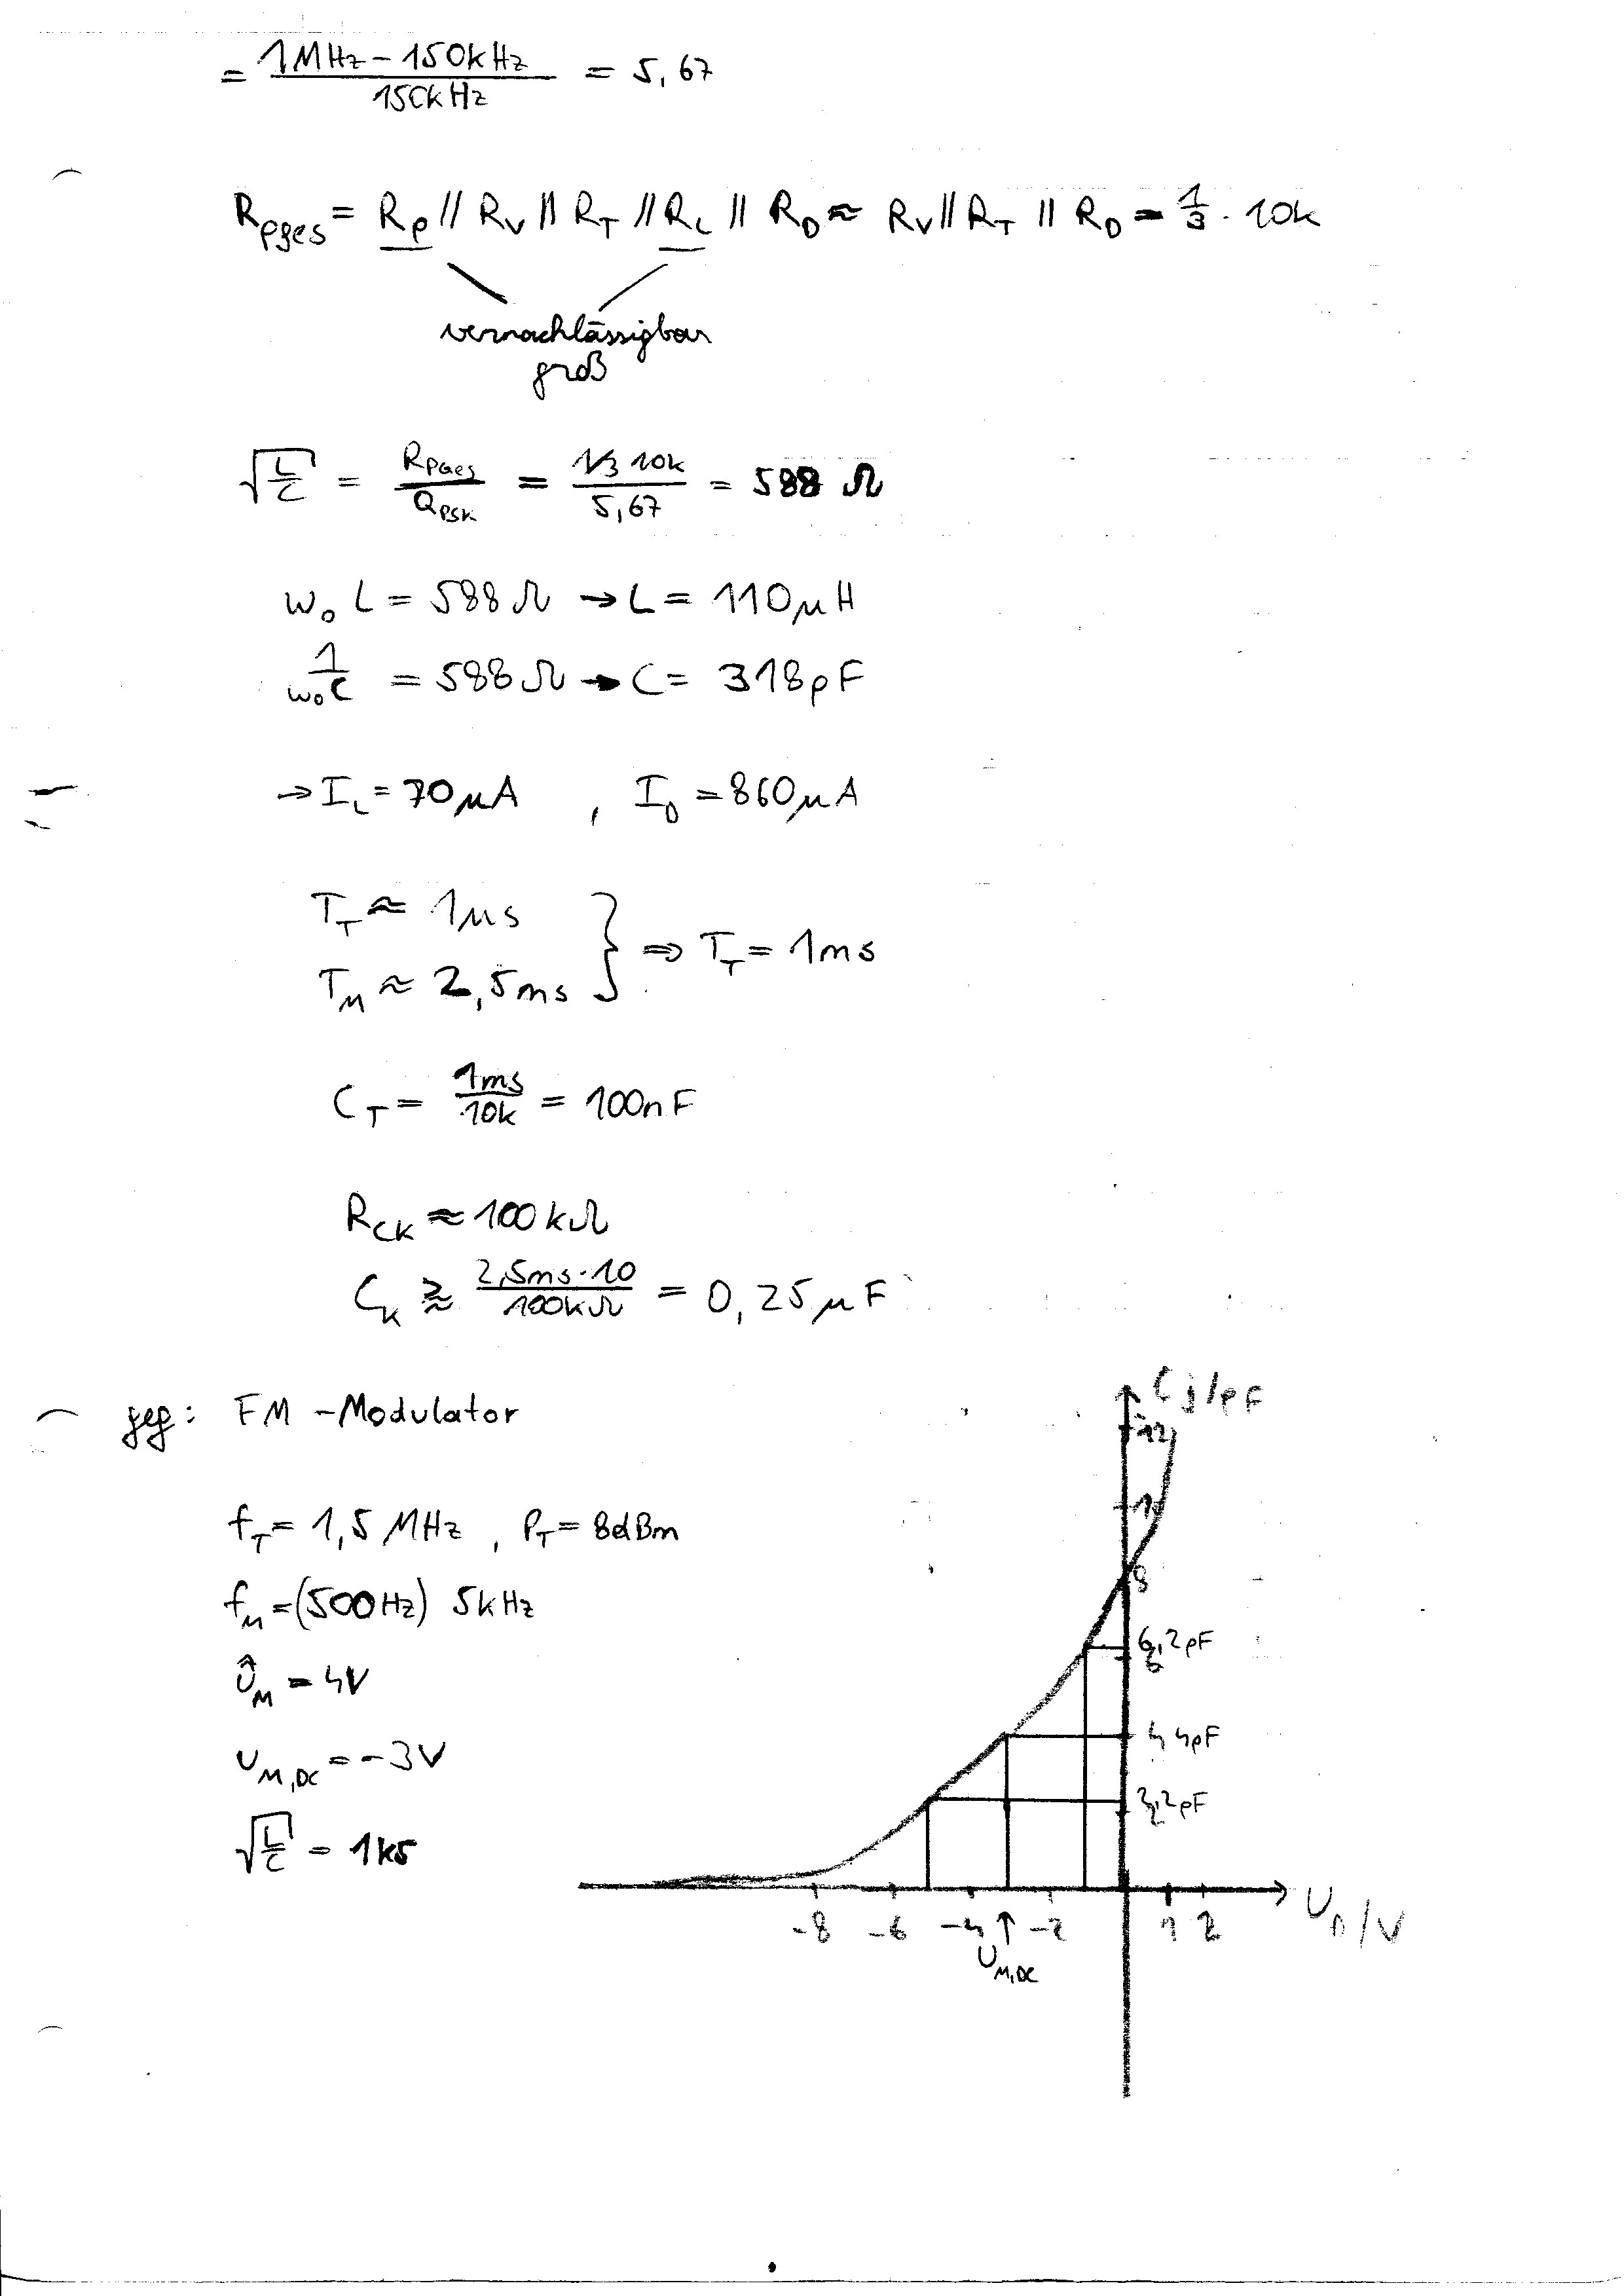 = (1MHz − 150kHz) / 150kHz = 5,67
Rpges = Rp // RV // RT // RL // RD ≈ RV // RT // RD = 1/3 · 10k
vernachlässigbar
groß
√(L/C) = RPGes / QPSK = 1/3 10k / 5,67 = 588 Ω
ω0 L = 588 Ω → L = 110 µH
1/(ω0C) = 588 Ω → C = 318pF
⇒ IL = 70 µA , ID = 860 µA
TT ≈ 1µs
TM ≈ 2,5ms } ⇒ TT = 1ms
CT = 1ms / 10k = 100nF
RCK ≈ 100 kΩ
CK ⪆ 2,5ms·10 / 100kΩ = 0,25 µF
geg: FM - Modulator
fT = 1,5 MHz , PT = 8dBm
fM = (500Hz) 5kHz
ÛM = 4V
UM,DC = -3V
√(L/C) = 1k5
Cj/pF
12
10
8
6,2pF
6
4,4pF
3,2pF
-8 -6 -4 ↑ -2 1 2 UD/V
UM,DC